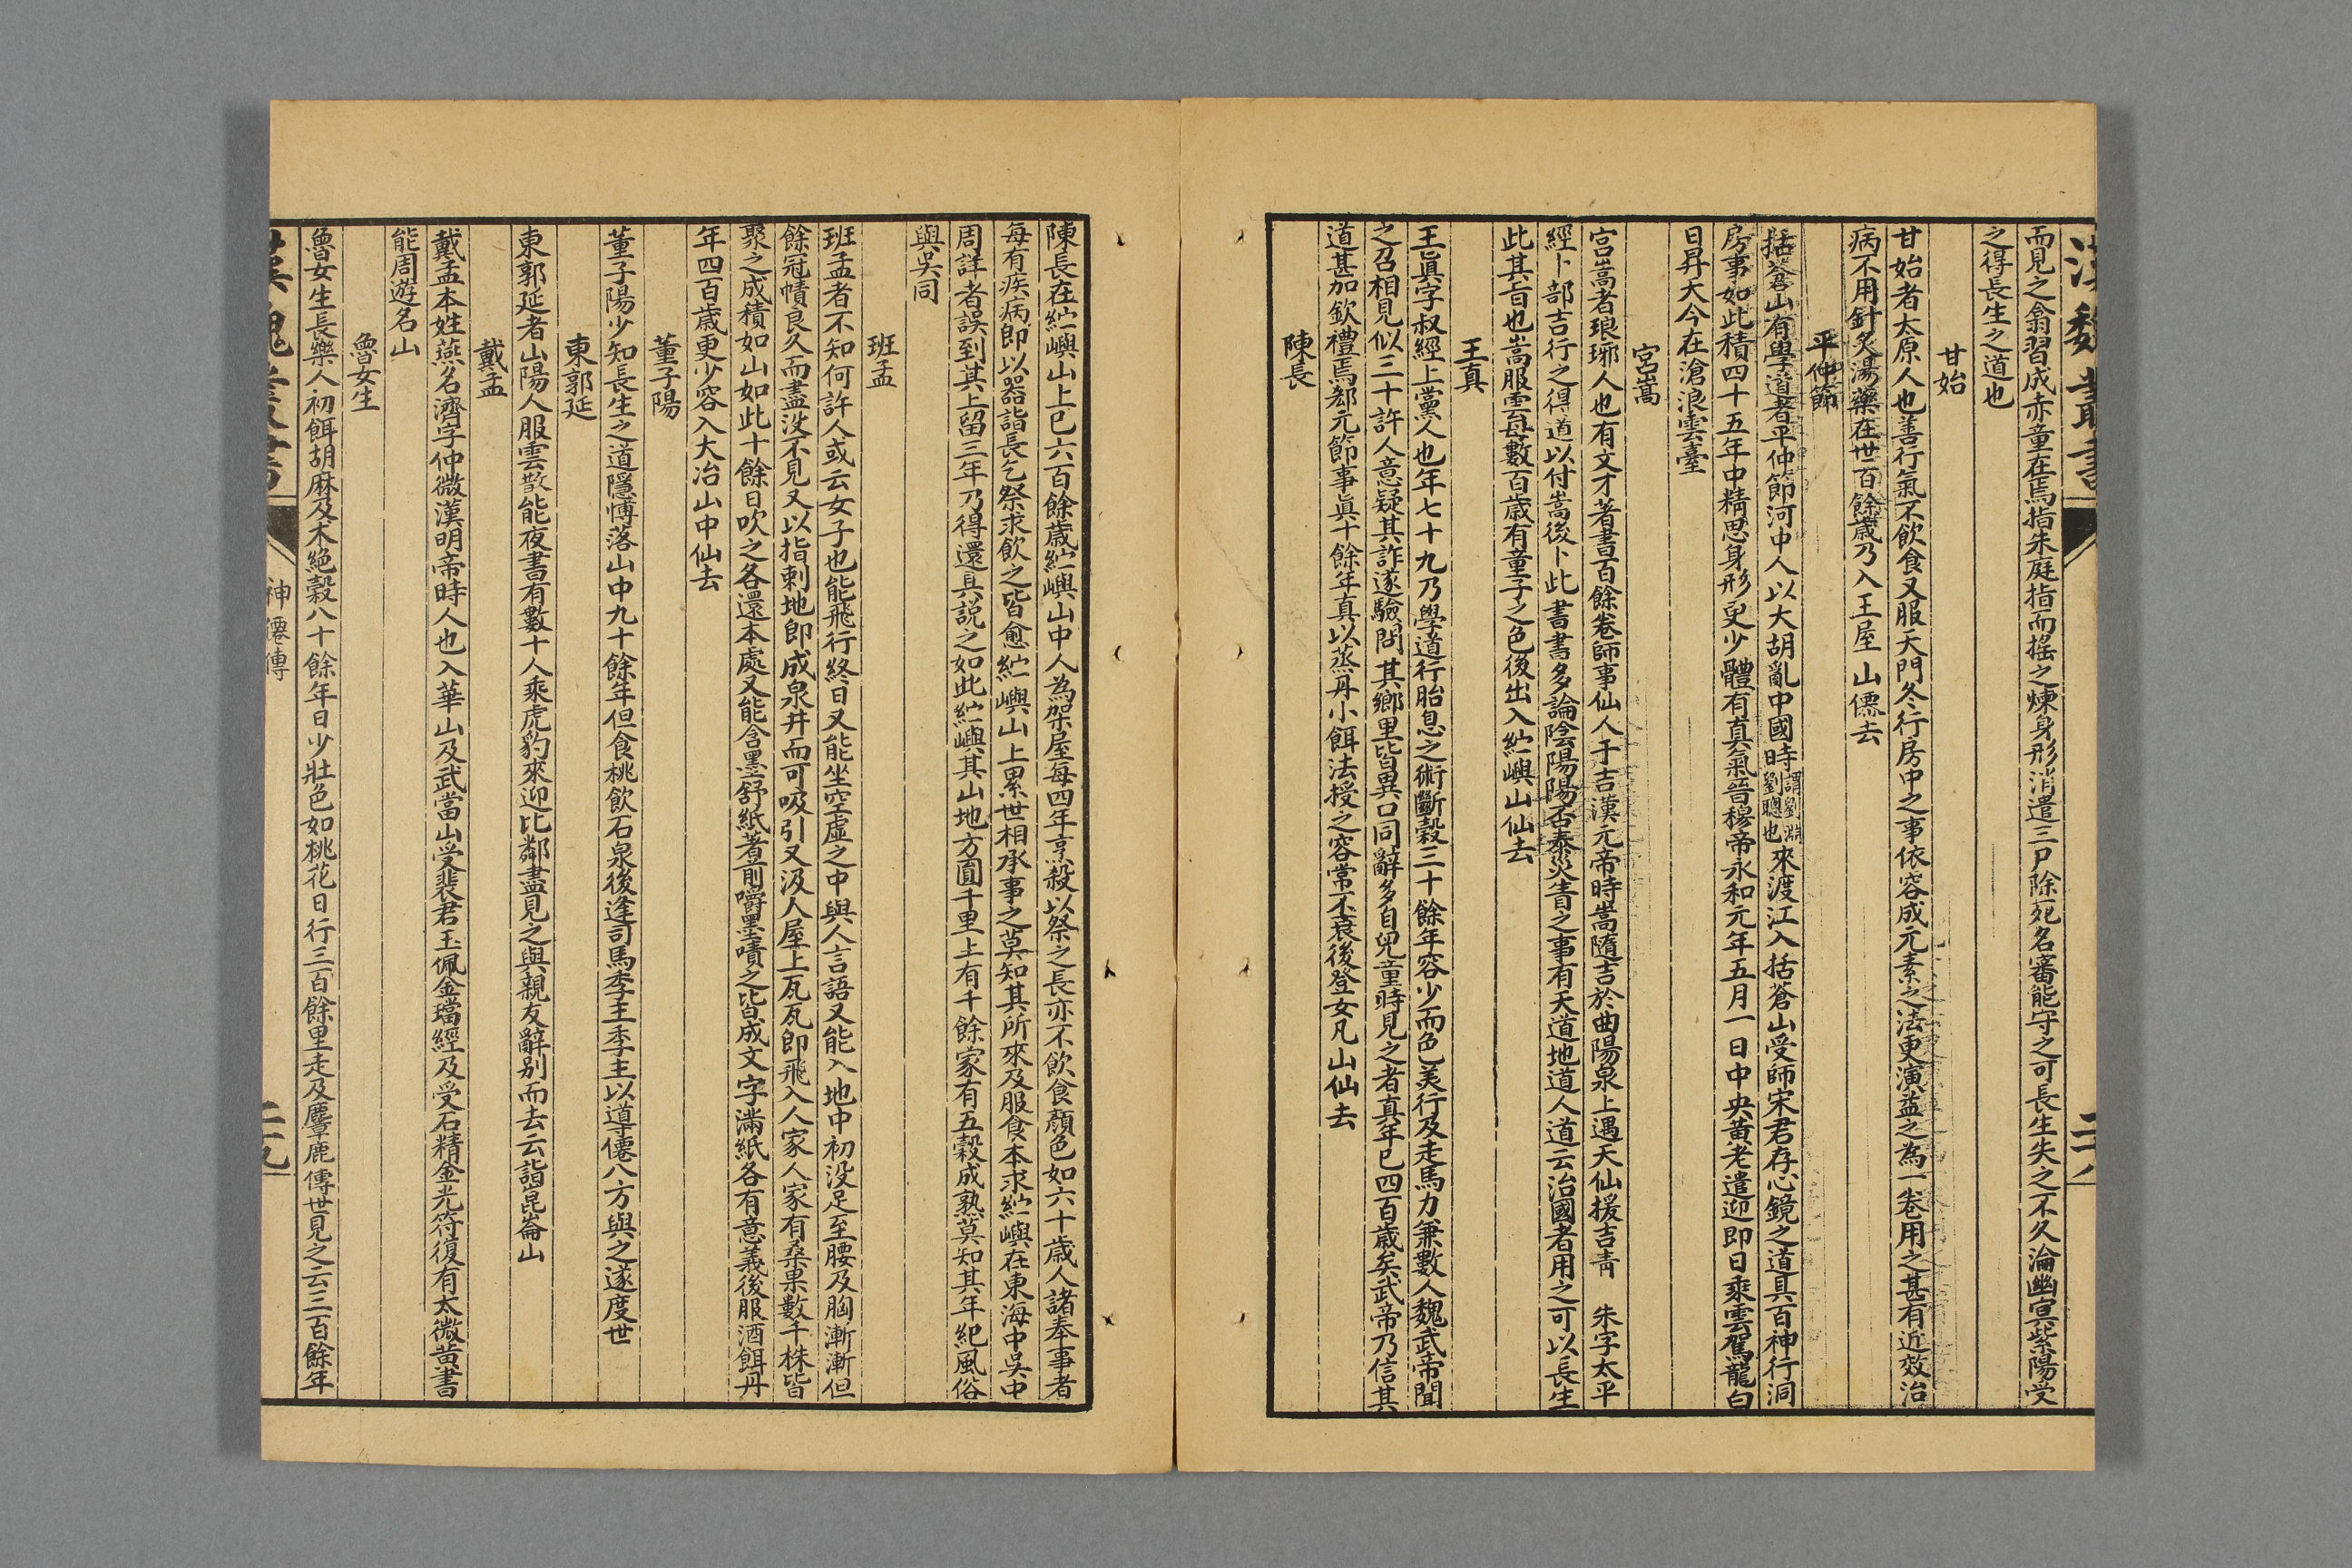 漢魏叢書
二八
而見之翕習成赤童在焉指朱庭指而搖之煉身形消遣三尸除死名審能守之可長生失之不久淪幽冥紫陽受
之得長生之道也
甘始
甘始者太原人也善行氣不飲食又服天門冬行房中之事依容成元素之法更演益之為一卷用之甚有近效治
病不用針炙湯藥在世百餘歲乃入王屋山僊去
平仲節
括蒼山有學道者平仲節河中人以大胡亂中國時謂劉淵劉聰也來渡江入括蒼山受師宋君存心鏡之道具百神行洞
房事如此積四十五年中精思身形更少體有真氣晉穆帝永和元年五月一日中央黃老遣迎即日乘雲駕龍白
日昇天今在滄浪雲臺
宮嵩
宮嵩者琅琊人也有文才著書百餘卷師事仙人于吉漢元帝時嵩隨吉於曲陽泉上遇天仙援吉青 朱字太平
經卜部吉行之得道以付嵩後卜此書書多論陰陽陽否泰災眚之事有天道地道人道云治國者用之可以長生
此其旨也嵩服雲母數百歲有童子之色後出入紵嶼山仙去
王真
王真字叔經上黨人也年七十九乃學道行胎息之術斷穀三十餘年容少而色美行及走馬力兼數人魏武帝聞
之召相見似三十許人意疑其詐遂驗問其鄉里皆異口同辭多自兒童時見之者真年已四百歲矣武帝乃信其
道甚加欽禮焉郗元節事真十餘年真以蒸丹小餌法授之容常不衰後登女凡山仙去
陳長
陳長在紵嶼山上已六百餘歲紵嶼山中人為架屋每四年烹殺以祭之長亦不飲食顏色如六十歲人諸奉事者
每有疾病即以器詣長乞祭求飲之皆愈紵嶼山上累世相承事之莫知其所來及服食本求紵嶼在東海中吳中
周詳者誤到其上留三年乃得還具說之如此紵嶼其山地方圓千里上有千餘家有五穀成熟莫知其年紀風俗
與吳同
班孟
班孟者不知何許人或云女子也能飛行終日又能坐空虛之中與人言語又能入地中初没足至腰及胸漸漸但
餘冠幘良久而盡没不見又以指刺地即成泉井而可吸引又汲人屋上瓦瓦即飛入人家人家有桑果數千株皆
聚之成積如山如此十餘日吹之各還本處又能含墨舒紙著前嚼墨嘖之皆成文字滿紙各有意義後服酒餌丹
年四百歲更少容入大冶山中仙去
董子陽
董子陽少知長生之道隱博落山中九十餘年但食桃飲石泉後逢司馬季主季主以導僊八方與之遂度世
東郭延
東郭延者山陽人服雲散能夜書有數十人乘虎豹來迎比鄰盡見之與親友辭别而去云詣崑崙山
戴孟
戴孟本姓燕名濟字仲微漢明帝時人也入華山及武當山受裴君玉佩金璫經及受石精金光符復有太微黃書
能周遊名山
魯女生
魯女生長樂人初餌胡麻及朮絕穀八十餘年日少壯色如桃花日行三百餘里走及麞鹿傳世見之云三百餘年
漢魏叢書
神僊傳
二九